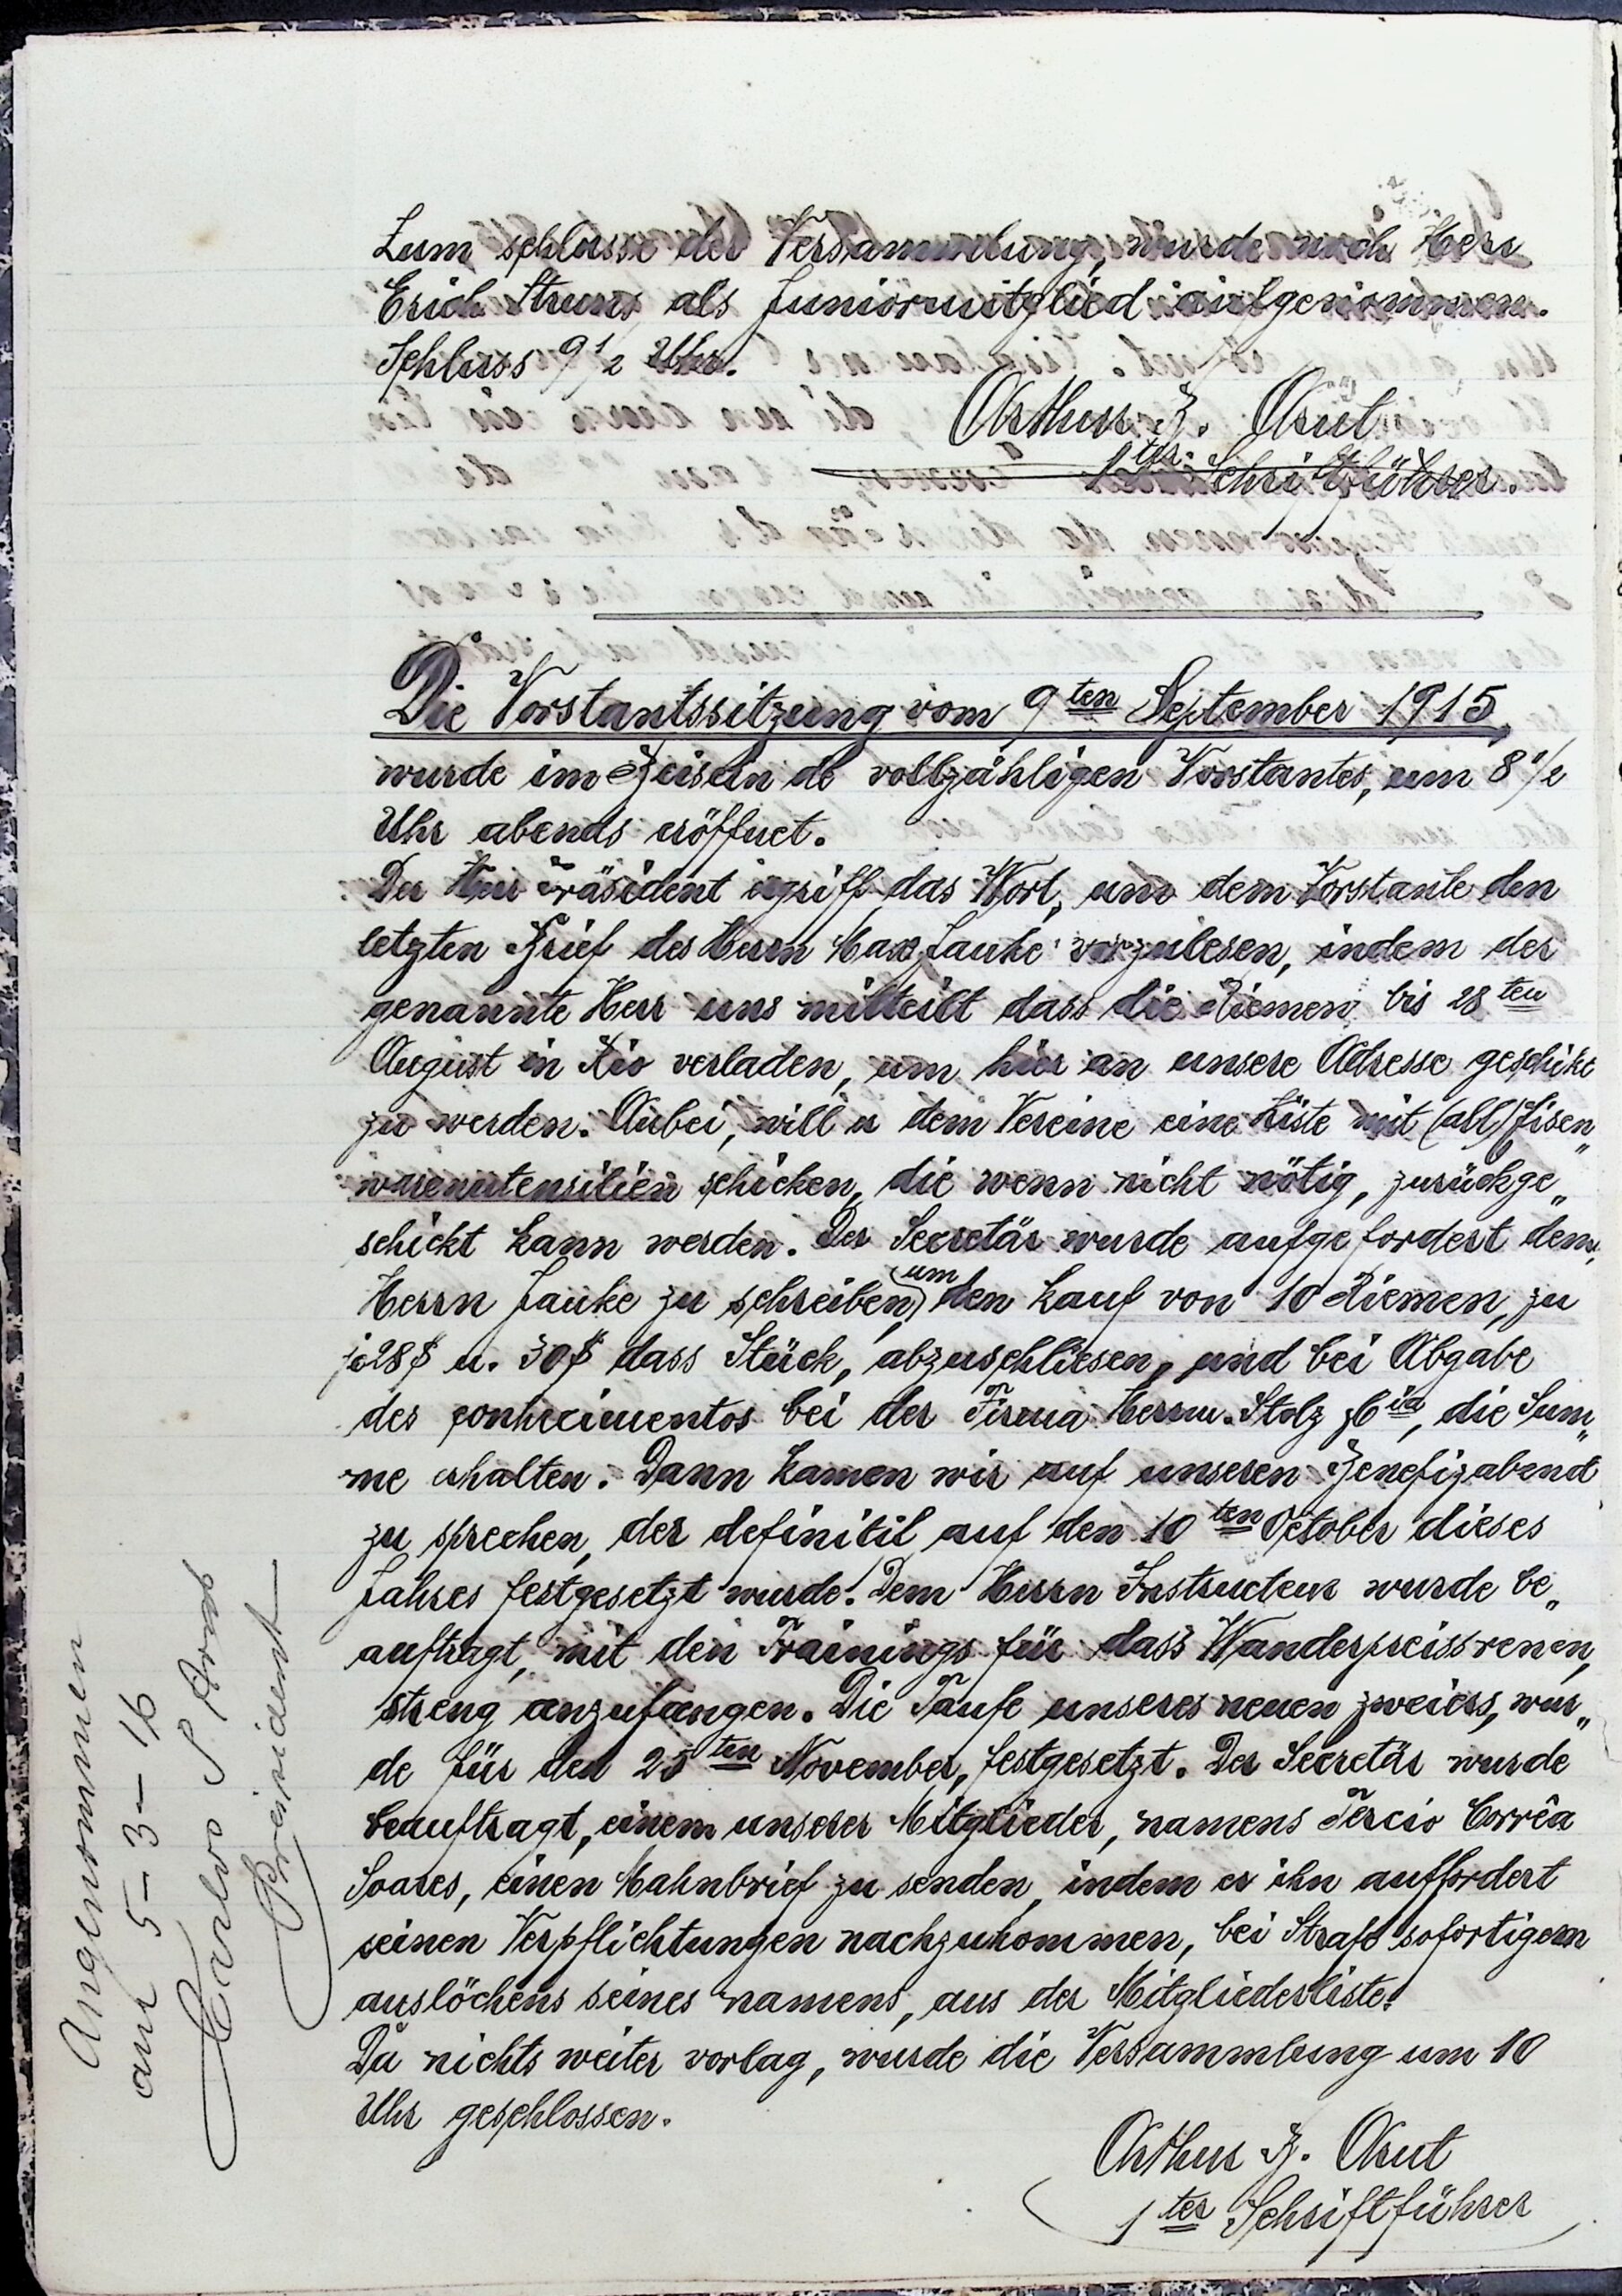 Zum schlusse der Versammlung, wurde noch Herr
Erich Struns als Juniormitglied aufgenommen.
Schluss 9 1/2 Uhr.
Arthur B. Arnt
1ter Schriftführer.
Die Vorstantssitzung vom 9ten September 1915,
wurde im Beisein de vollzähligen Vorstantes, um 8 1/2
Uhr abends eröffnet.
Der Herr Präsident ergriff das Wort, um dem Vorstante den
letzten Brief des Herrn Max Janke vorzulesen, indem der
genannte Herr uns mitteilt dass die Riemen bis 28ten
August in Rio verladen, um hier an unsere Adresse geschikt
zu werden. Anbei, will er dem Vereine eine Kiste mit (all) Eisen„
warenutensilien schicken, die wenn nicht nötig, zurückge„
schickt kann werden. Der Secretär wurde aufgefordert dem
Herrn Janke zu schreiben, um den Kauf von 10 Riemen, zu
je 28$ u. 30$ dass Stück, abzuschliesen, und bei Abgabe
des conhecimentos bei der Firma Herm. Stolz & Cia, die Sum„
me erhalten. Dann kamen wir auf unseren Benefizabend
zu sprechen, der definitil auf den 10ten October dieses
Jahres festgesetzt wurde. Dem Herrn Instructeur wurde be„
auftragt, mit den Trainings für dass Wanderpreissrenen,
streng anzufangen. Die Taufe unseres neuen zweiers, wur„
de für den 25ten November, festgesetzt. Der Secretär wurde
beauftragt, einem unserer Mitglieder, namens Tercio Corrêa
Soares, einen Mahnbrief zu senden, indem er ihn auffordert
seinen Verpflichtungen nachzukommen, bei Strafe sofortigem
auslöchens seines namens, aus der Mitgliederliste.
Da nichts weiter vorlag, wurde die Versammlung um 10
Uhr geschlossen.
Arthur B. Arnt
1ter Schriftführer
Angenommen
am 5-3-16
Carlos S Arnd
Präsident